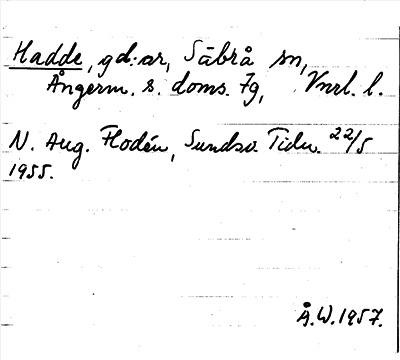 Hadde, gd:ar, Säbrå sn,
Ångerm. s. doms. tg, Vnrl. l.
N. Aug. Flodén, Sundsv. Tidn. 22/5
1955.
Å.W. 1957.